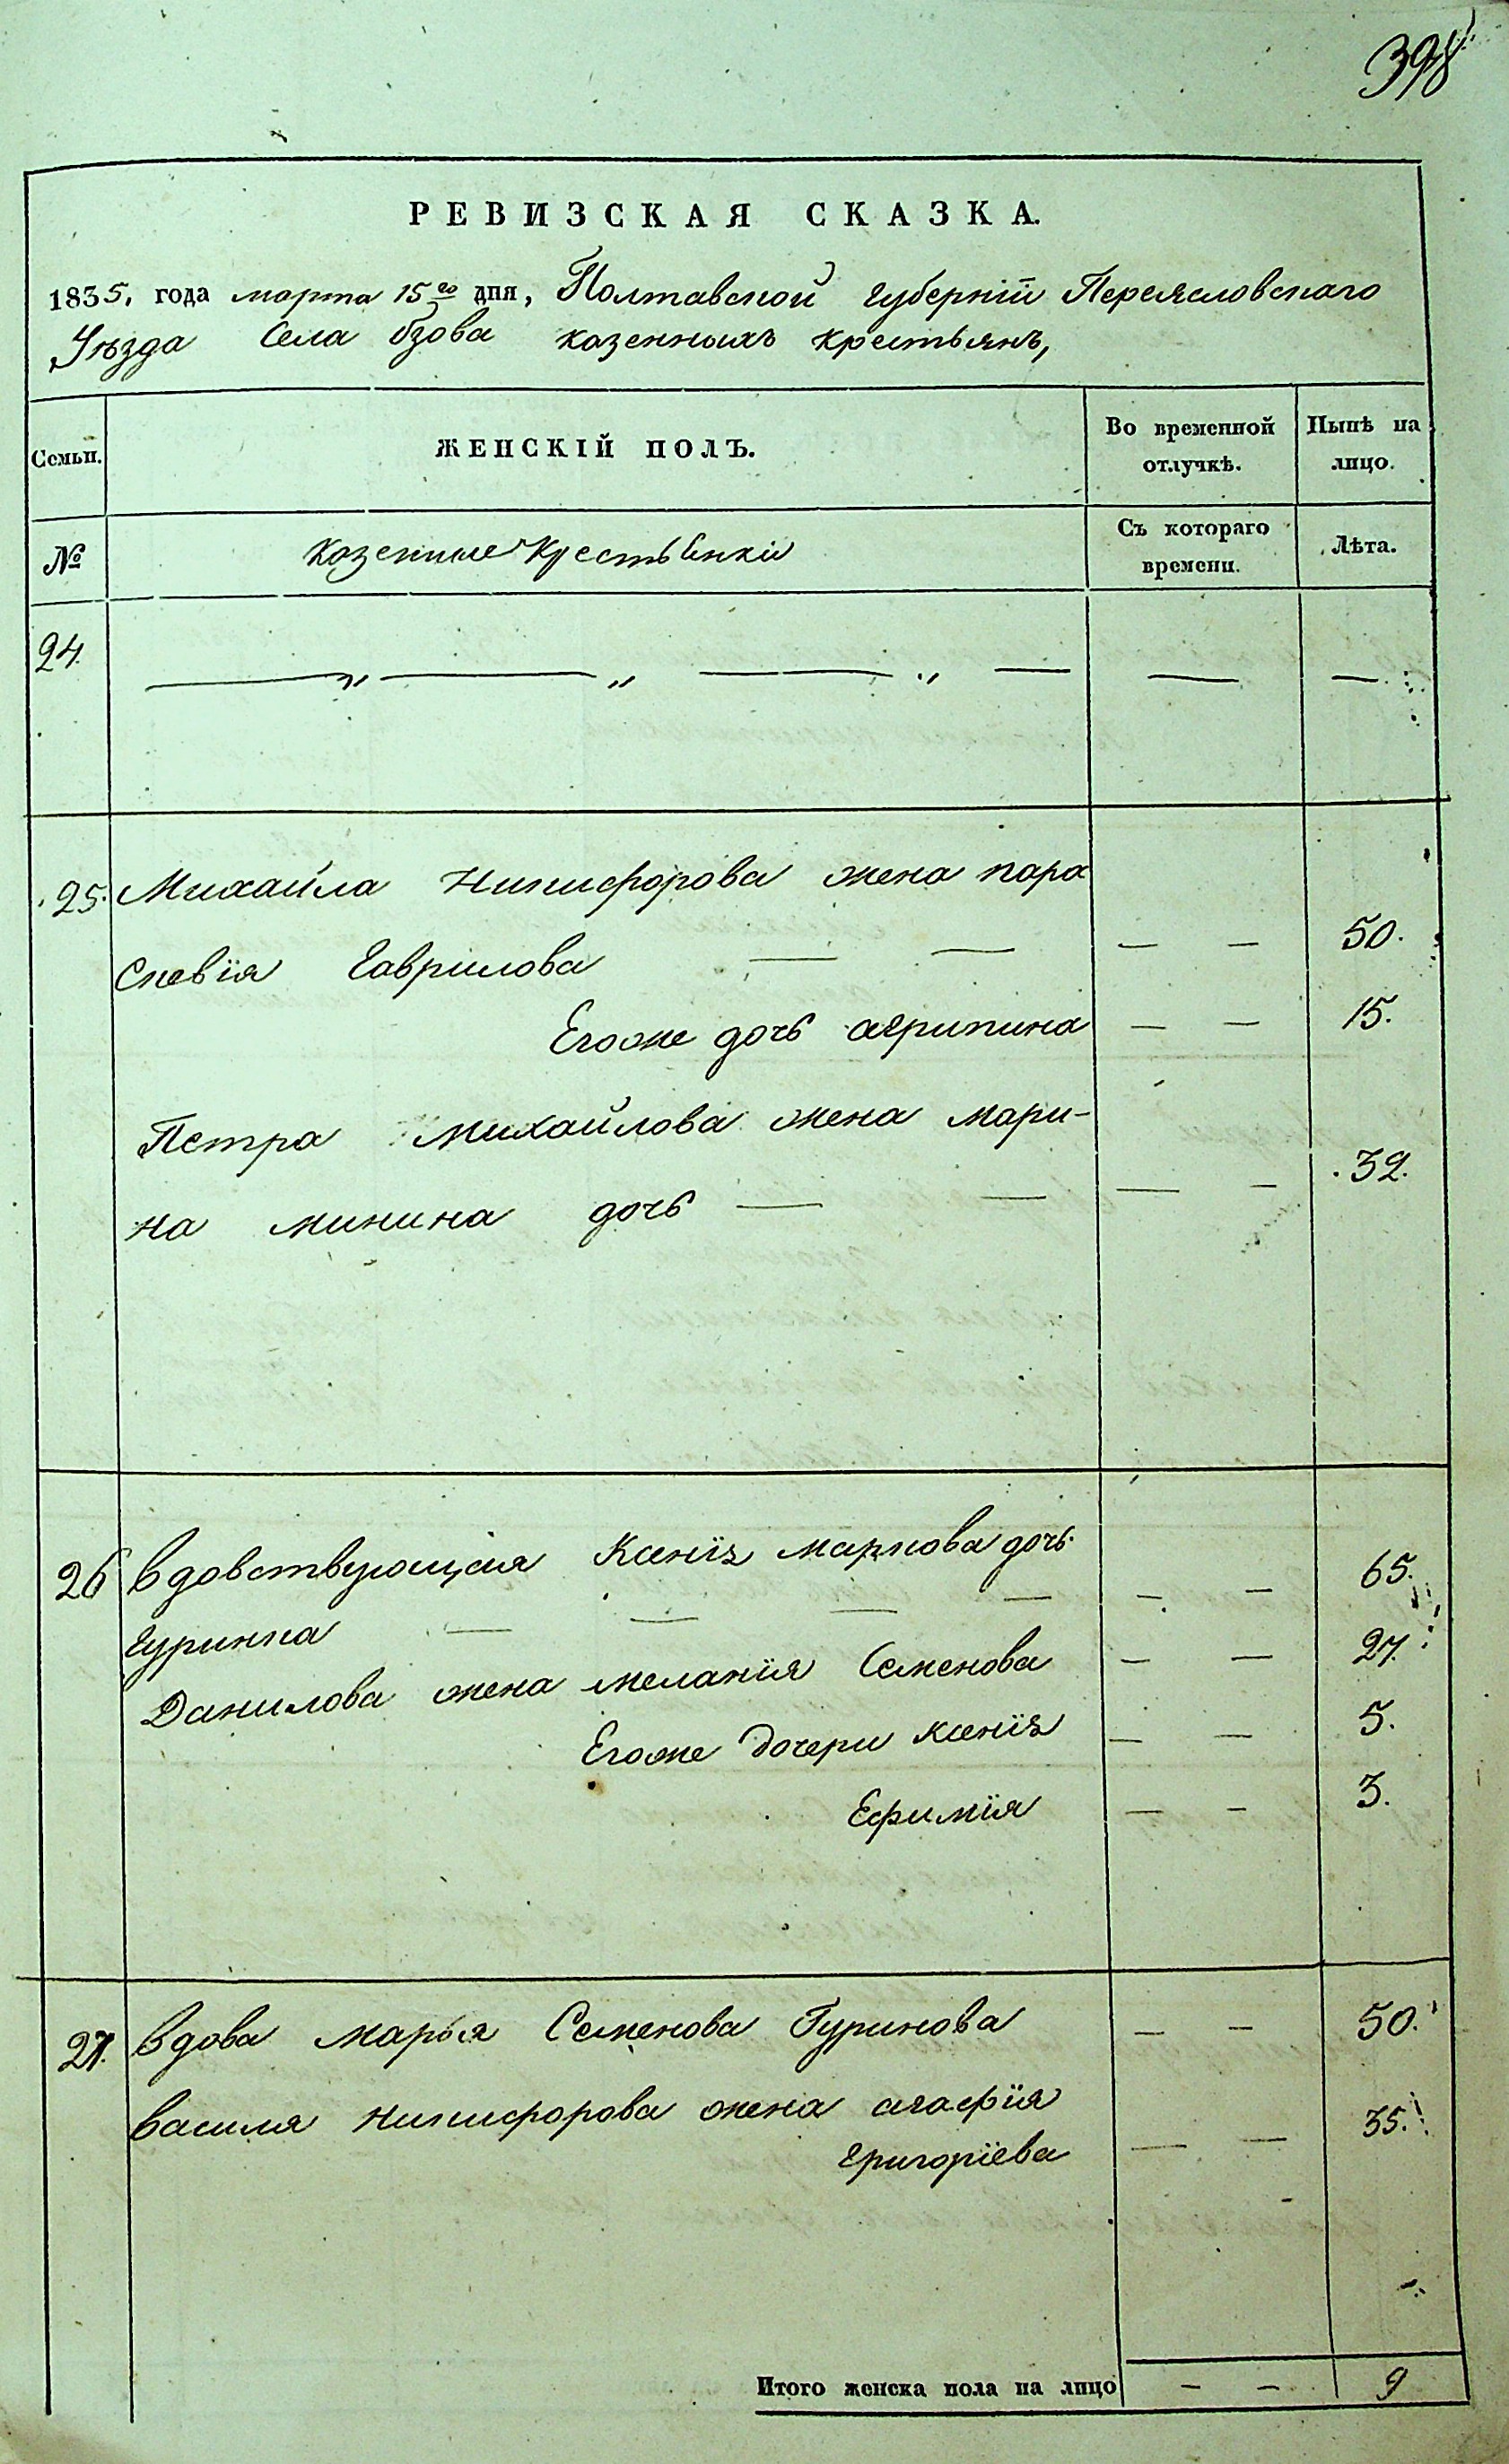 398
РЕВИЗСКАЯ СКАЗКА.
1835, года марта 15го дня, Полтавской Губернїи Переясловскаго
Уѣзда Села Бзова казенныхъ крестьянъ,
Семьи. ЖЕНСКІЙ ПОЛЪ. Во временной отлучкѣ. Нынѣ на лицо.
№ Казенные Крестьянки Съ котораго времени. Лѣта.
24. — „ — „ — „ — — —
25. Михайла Никифорова жена пара
скевїя Гаврилова — — — — 50.
Егоже дочь агрипина — — 15.
Петра Михайлова жена мари-
на минина дочь — — — — 32.
26 Вдовствующая Ксенїя маркова дочь
гуринка — — — — — — 65.
Данилова жена мелания Семенова — — 27.
Егоже дочери ксенїя — — 5.
Ефимїя — — 3.
27. Вдова марья Семенова Гуринова — — 50.
Василя никифорова жена агафїя
григорїева — — 35.
Итого женска пола на лицо — — 9